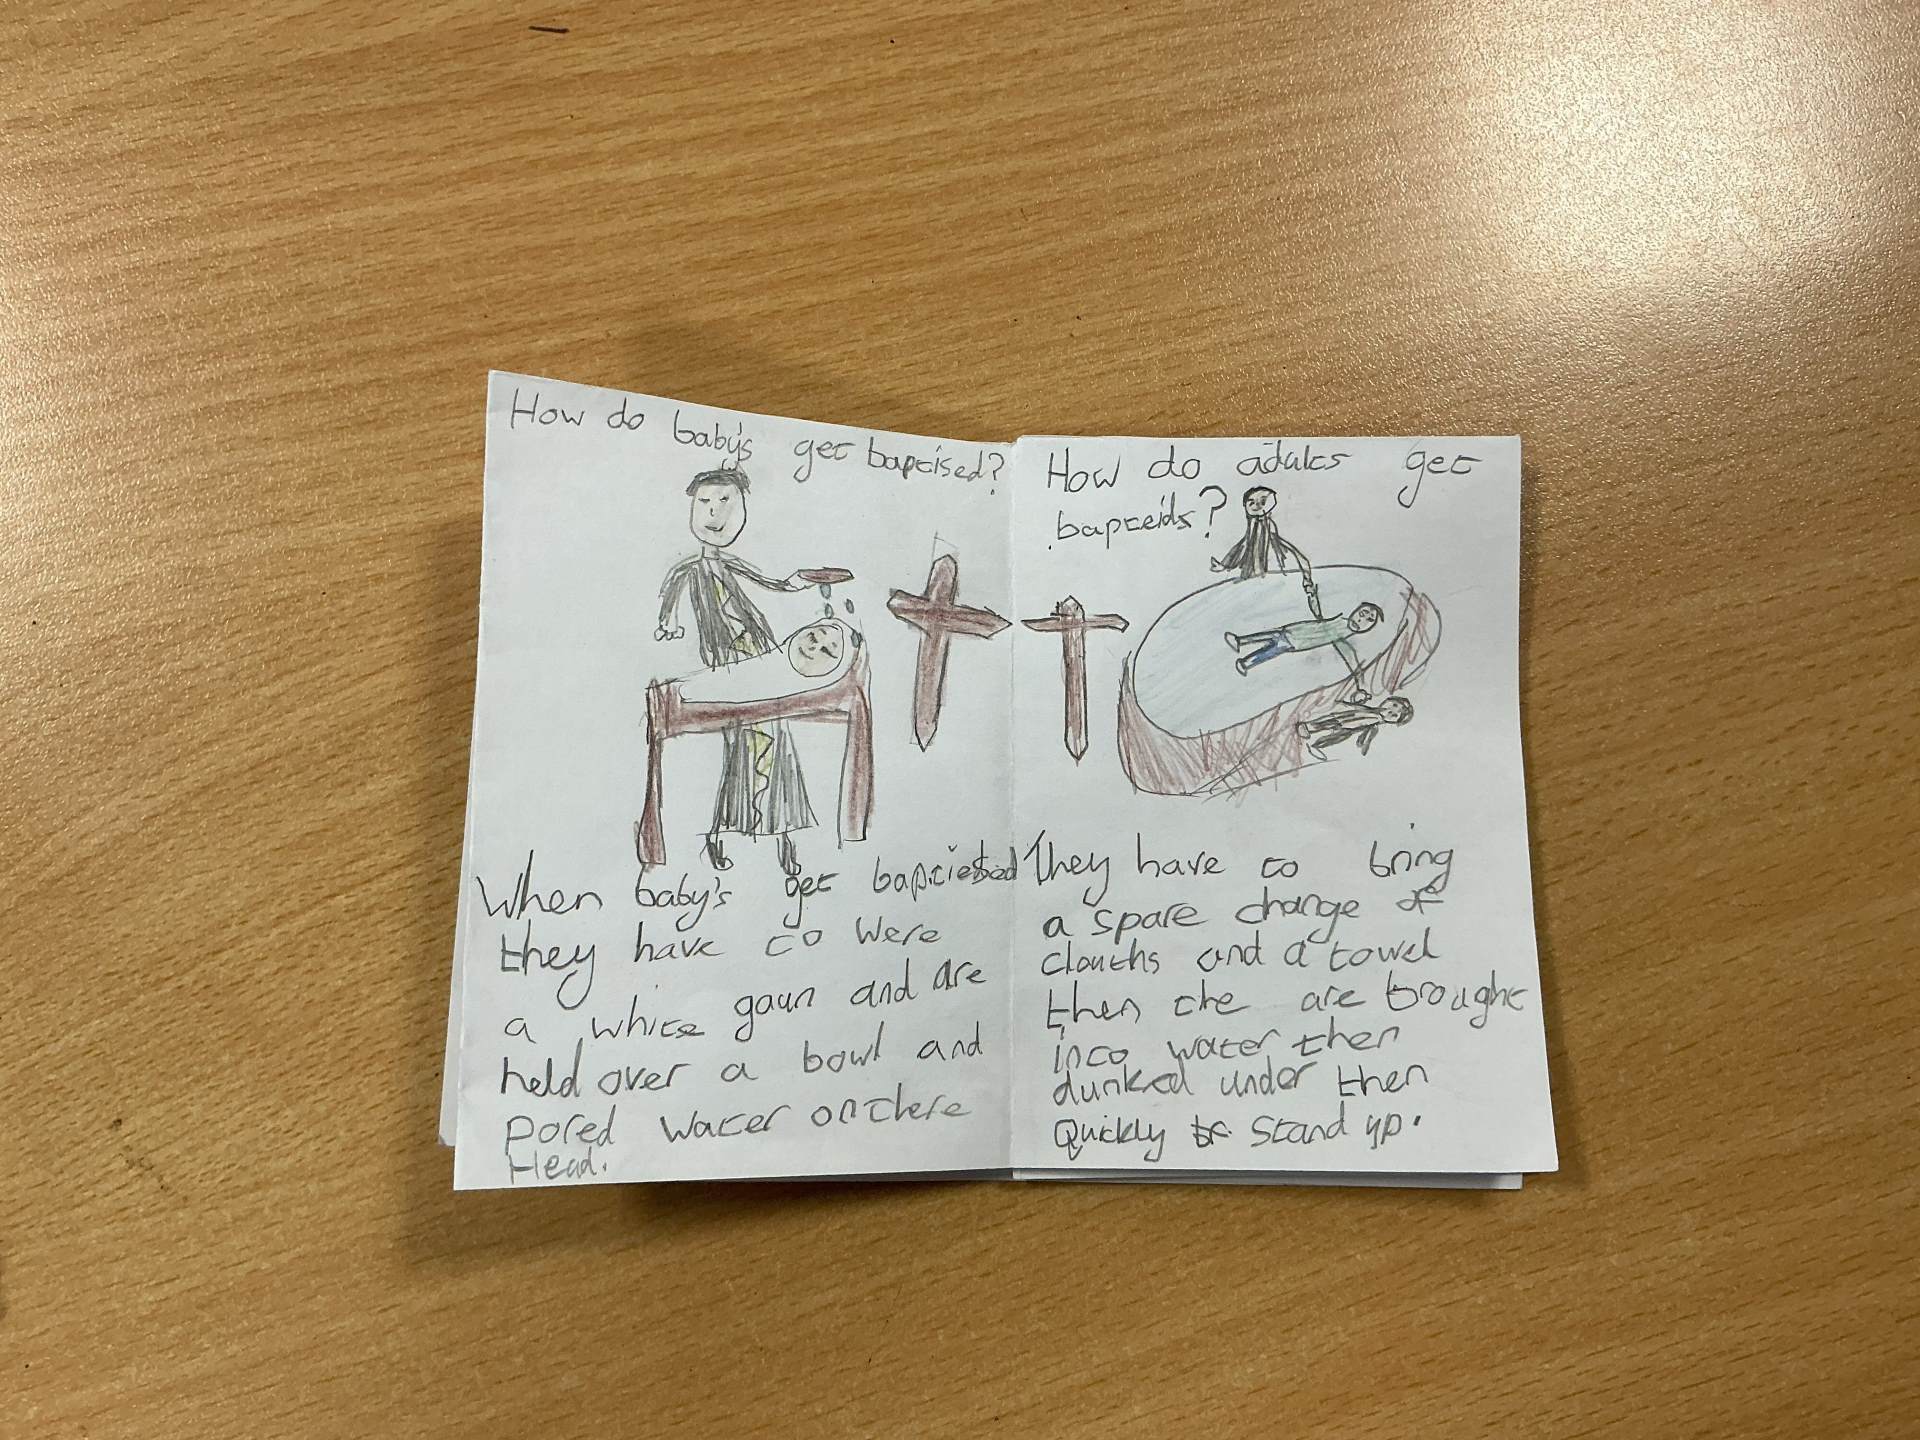 How do baby's get baptised?
When baby's get baptiesed
they have to were
a white gaun and are
held over a bowl and
pored water on there
Head.
How do adults get
bapteids?
They have to bring
a spare change of
clouths and a towel
then the are brought
into water then
dunked under then
Quickly stand up.